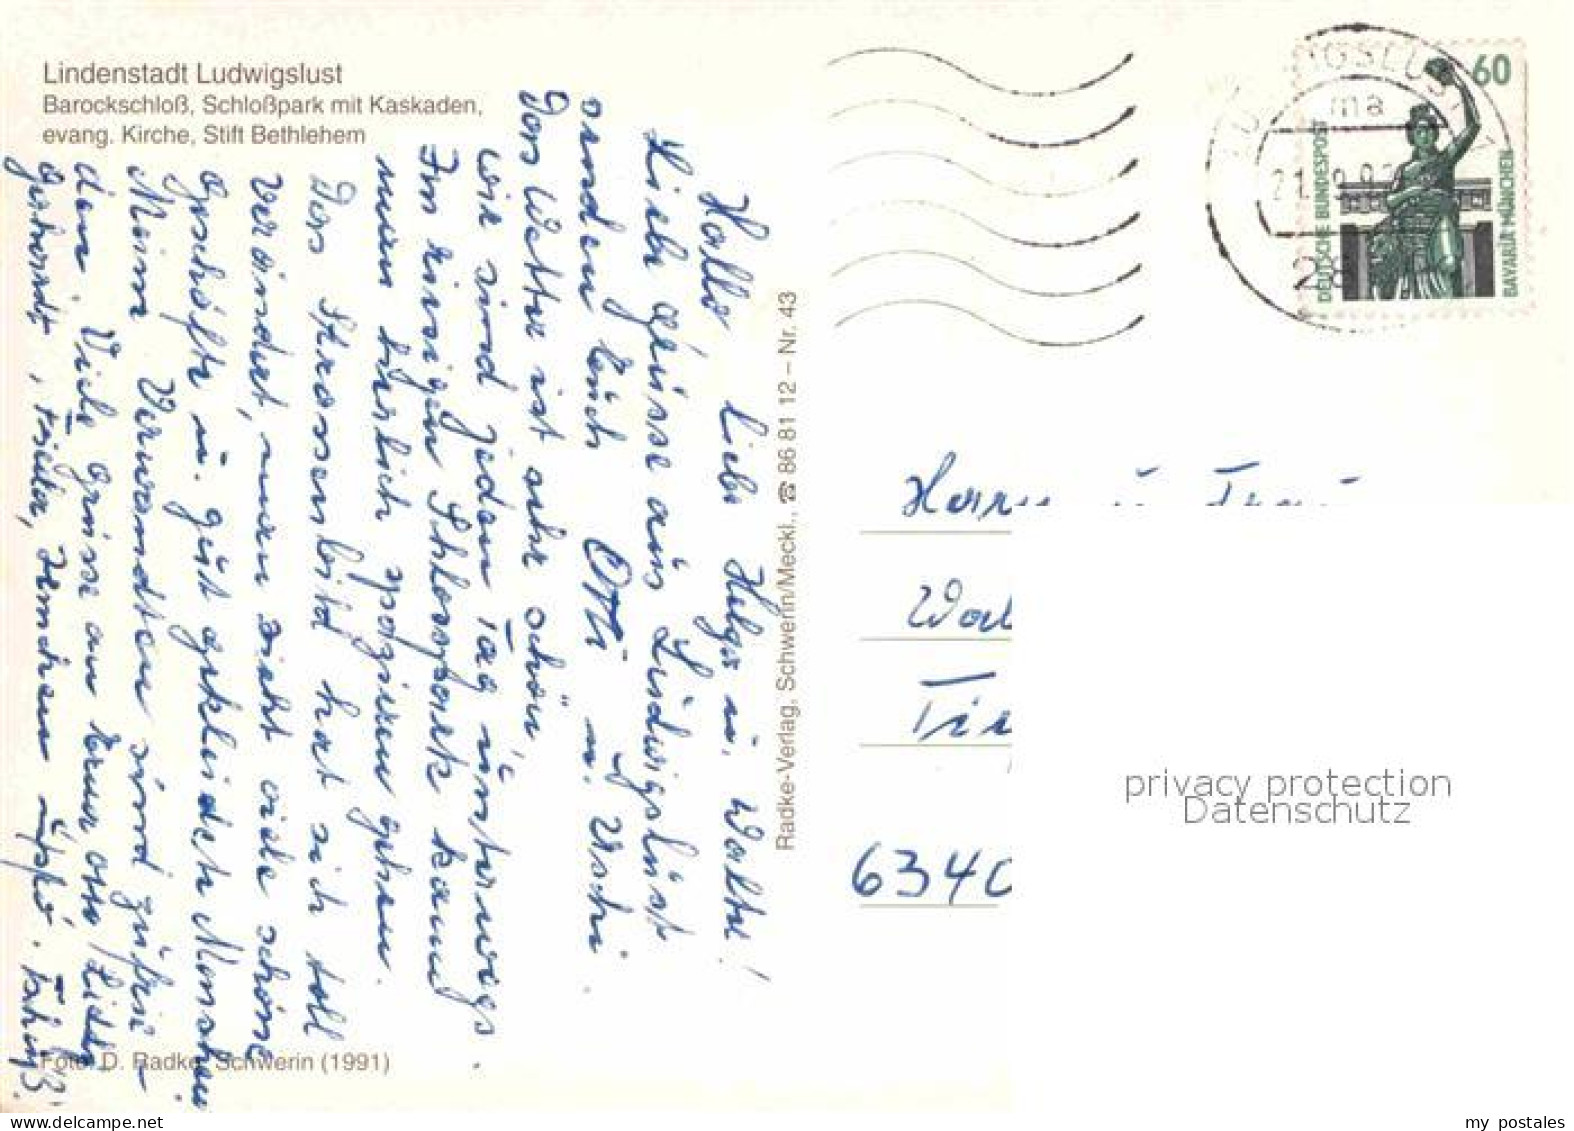 Lindenstadt Ludwigslust
Barockschloß, Schloßpark mit Kaskaden,
evang. Kirche, Stift Bethlehem
Hallo liebe Helga u. Walter!
Liebe Grüsse aus Ludwigslust
senden Euch Otti u. Uschi.
Das Wetter ist sehr schön,
wir sind jeden Tag unterwegs.
Im riesigen Schlosspark kann
man herrlich spazieren gehen.
Das Strassenbild hat sich toll
verändert, man sieht viele schöne
Geschäfte u. gut gekleidete Menschen
Meine Verwandten sind zufrie-
den. Viele Grüsse an
Foto: D. Radke, Schwerin (1991)
Radke-Verlag, Schwerin/Meckl., ☎ 86 81 12 – Nr. 43
60
DEUTSCHE BUNDESPOST
BAVARIA MÜNCHEN
ma
6340
privacy protection
Datenschutz
my postales